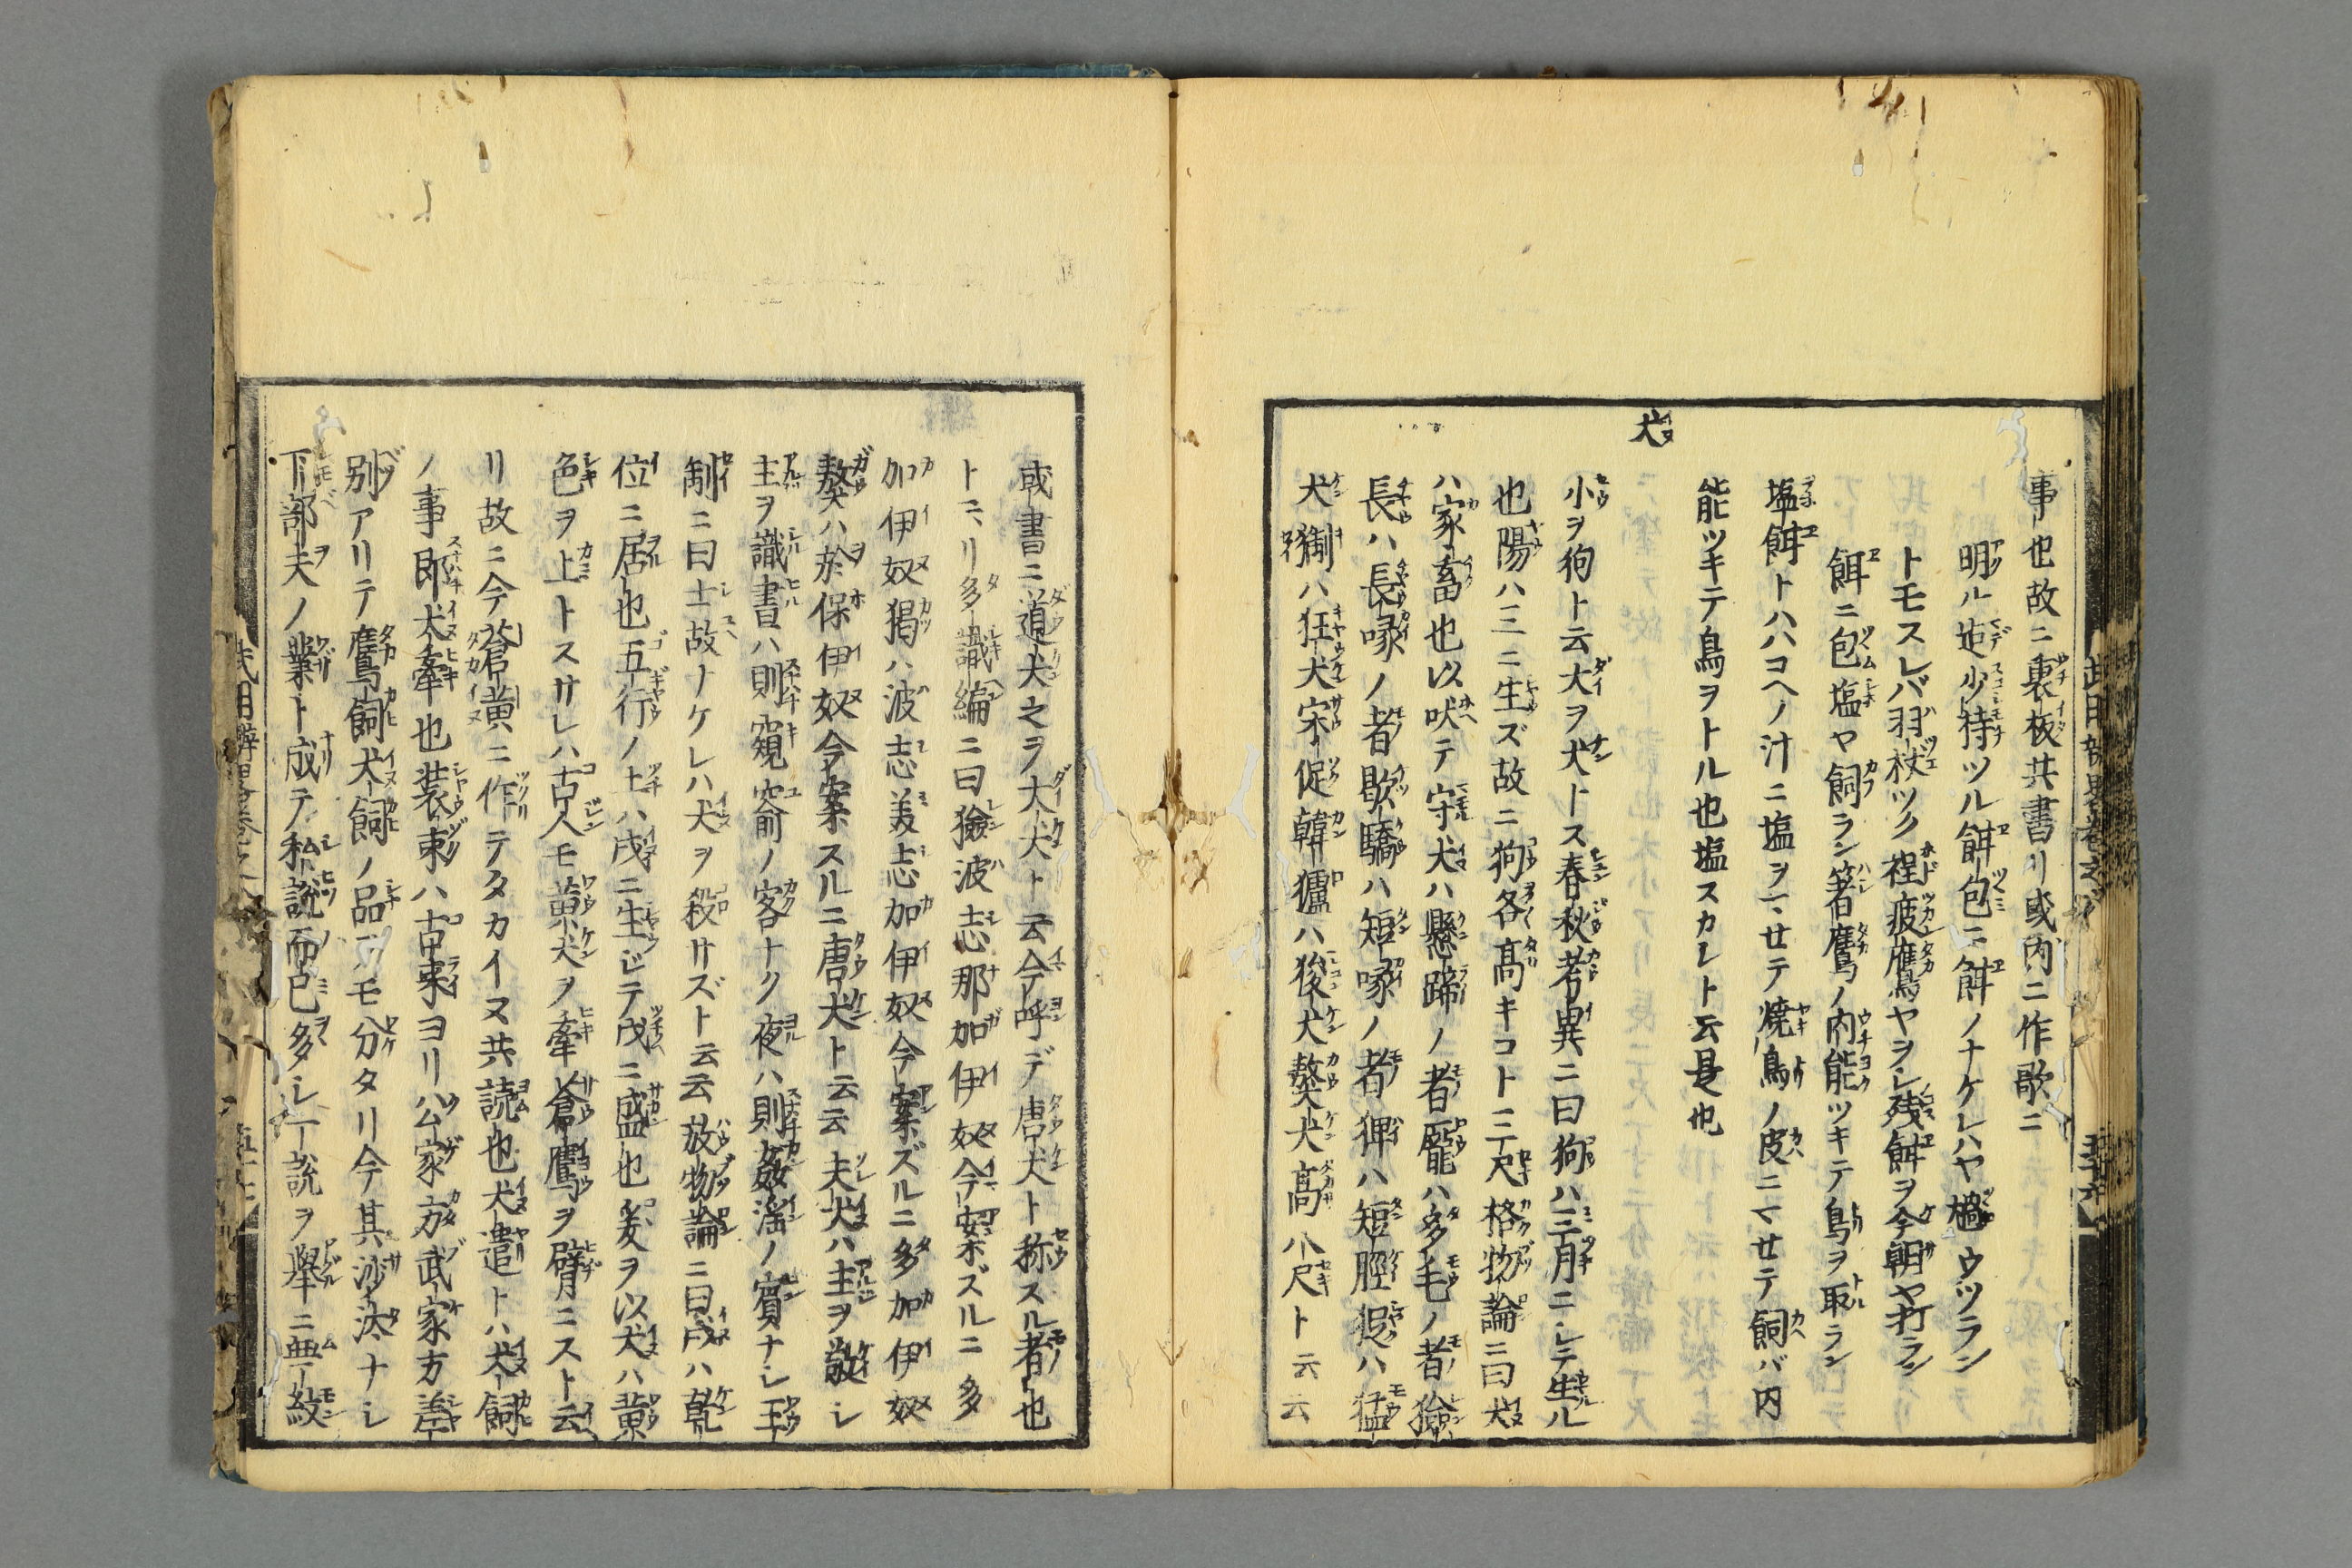 事也故ニ裏板共書リ或内ニ作歌ニ
明ル迄少待ツル餌包ニ餌ノナケレハヤ樴ウツラン
トモスレバ羽杖ツク程疲鷹ヤヲレ残餌ヲ今朝ヤ打ラン
餌ニ包塩ヤ飼ラン箸鷹ノ内能ツキテ鳥ヲ取ラン
塩餌トハハコヘノ汁ニ塩ヲマセテ焼鳥ノ皮ニマセテ飼バ内
能ツキテ鳥ヲトル也塩スカレト云是也
犬
小ヲ狗ト云大ヲ犬トス春秋考異ニ曰狗ハ三月ニシテ生ル
也陽ハ三ニ生ズ故ニ狗各高キコト三尺格物論ニ曰犬
ハ家畜也以吠テ守犬ハ懸蹄ノ者厖ハ多毛ノ者獫
長ハ長喙ノ者歇驕ハ短喙ノ者猈ハ短脛猑ハ猛
犬猘ハ狂犬宋㹱韓獹ハ狻犬獒犬高八尺ト云云
或書ニ道犬之ヲ大犬ト云今呼デ唐犬ト称スル者也
トミヽリ多識編ニ曰獫波志那加伊奴今案ズルニ多
加伊奴猲ハ波志美志加伊奴今案ズルニ多加伊奴
獒ハ於保伊奴今案スルニ唐犬ト云云夫犬ハ主ヲ敬シ
主ヲ識晝ハ則窺窬ノ客ナク夜ハ則姦淫ノ賓ナシ王
制ニ曰士故ナケレハ犬ヲ殺サズト云云放物論ニ曰戌ハ乾
位ニ居也五行ノ土ハ戌ニ生ジテ戊ニ盛也爰ヲ以犬ハ黄
色ヲ上トスサレハ古人モ黄犬ヲ牽蒼鷹ヲ臂ニスト云
リ故ニ今蒼黄ニ作テタカイヌ共読也犬遣トハ犬飼
ノ事即犬牽也装束ハ古来ヨリ公家方武家方差
別アリテ鷹飼犬飼ノ品ヲモ分タリ今其沙汰ナシ
下部夫ノ業ト成テ私説而已多シ一説ヲ舉ニ無紋